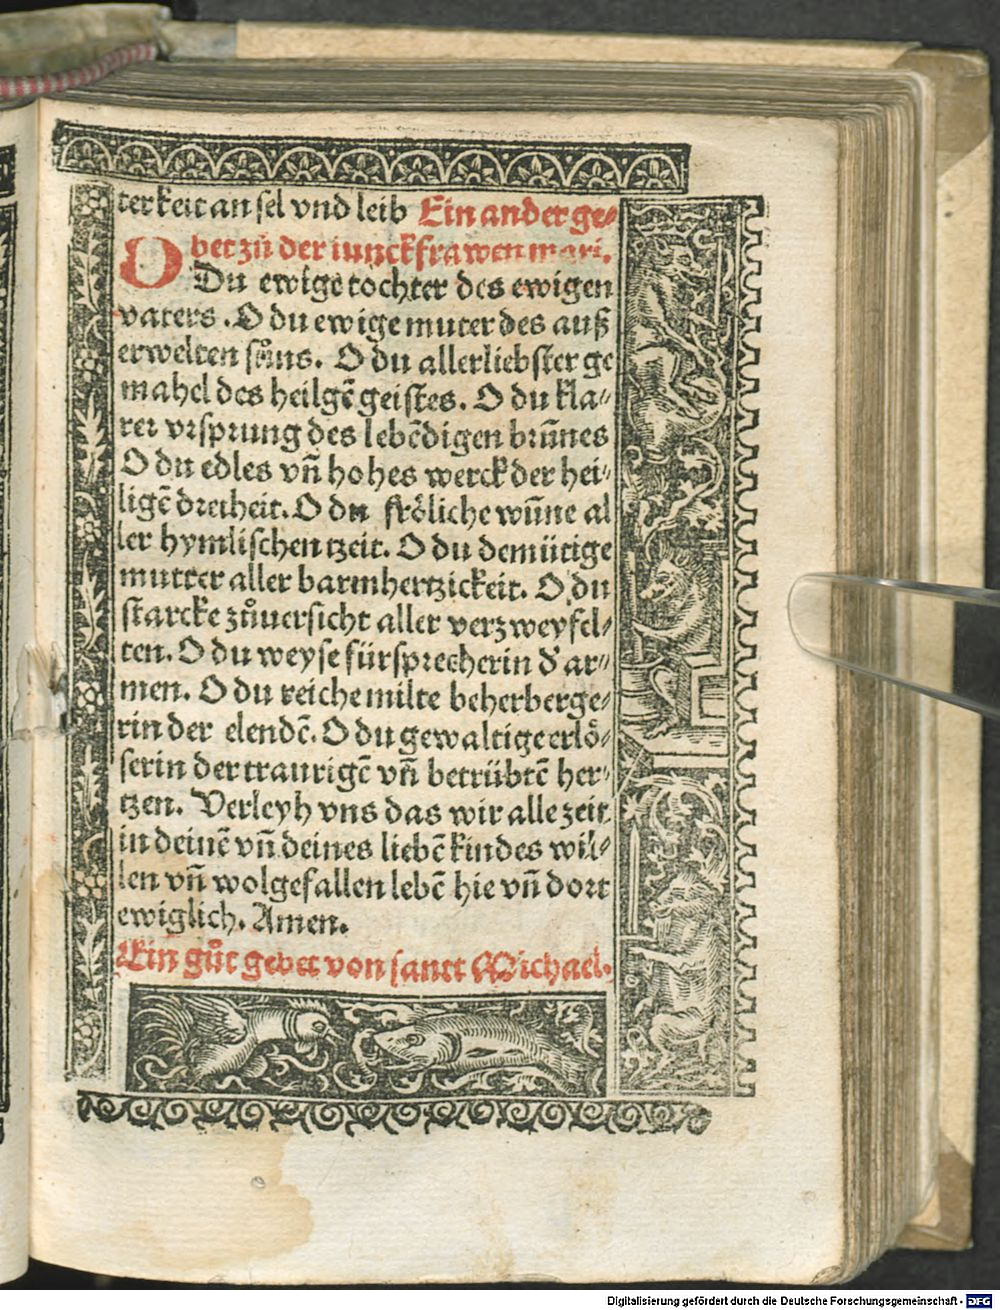 terkeit an sel vnd leib Ein ander ge⸗
bet zů der iunckfrawen mari.
O Du ewige tochter des ewigen
vaters . O du ewige muter des auß
erwelten sůns. O du allerliebster ge
mahel des heilgē geistes. O du kla⸗
rer vrsprung des lebēdigen brūnes
O du edles vñ hohes werck der hei⸗
ligē dreiheit. O du frőliche wūne al
ler hymlischen tzeit. O du demütige
mutter aller barmhertzickeit. O du
starcke zůuersicht aller verzweyfel⸗
ten. O du weyse fürsprecherin d' ar⸗
men. O du reiche milte beherberge⸗
rin der elendē. O du gewaltige erlő⸗
serin der traurigē vñ betrübtē her⸗
tzen. Verleyh vns das wir alle zeit
in deinē vñ deines liebē kindes wil⸗
len vñ wolgefallen lebē hie vñ dort
ewiglich. Amen.
Ein gůt gebet von sanct Michael.
Digitalisierung gefördert durch die Deutsche Forschungsgemeinschaft - DFG